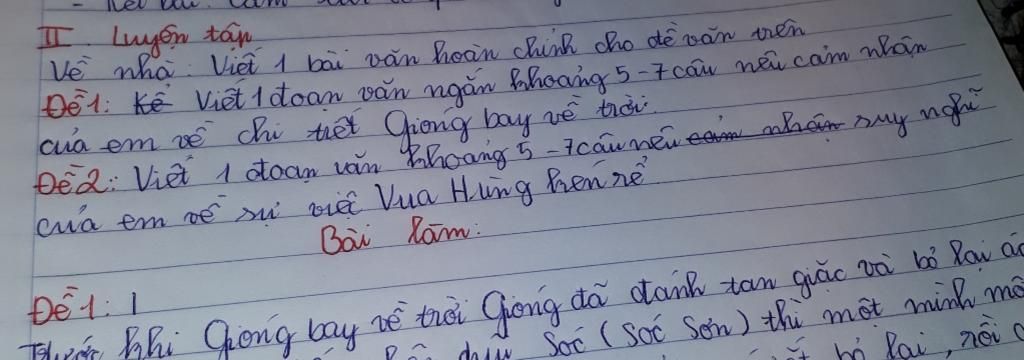 - Kết bài: Cảm
II. Luyện tập
Về nhà: Viết 1 bài văn hoàn chỉnh cho đề văn trên
Đề 1: Kể Viết 1 đoạn văn ngắn khoảng 5-7 câu nêu cảm nhận
của em về chi tiết Gióng bay về trời.
Đề 2: Viết 1 đoạn văn khoảng 5-7 câu nêu cảm nhận suy nghĩ
của em về sự việc Vua Hùng kén rể
Bài làm:
Đề 1: 1
Trước khi Gióng bay về trời Gióng đã đánh tan giặc và bỏ lại áo
Sóc (Sóc Sơn) thì một mình
bỏ lại, rồi